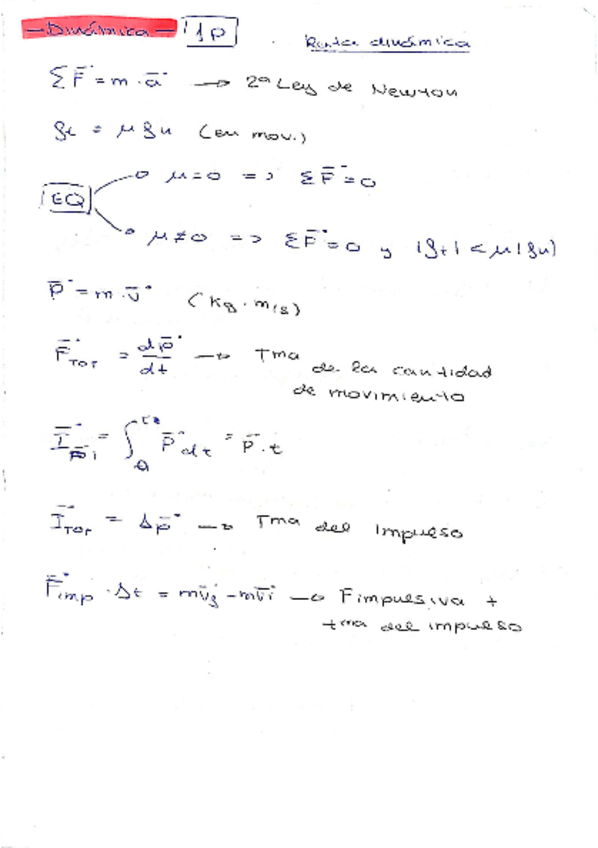 - Dinámica - 1p
Ruta dinámica
ΣF⃗ = m · a⃗ → 2ª Ley de Newton
ft = μ fn (en mov.)
EQ
μ=0 => ΣF⃗=0
μ≠0 => ΣF⃗=0 y |ft| < μ|fn|
p⃗ = m · v⃗ (kg · m/s)
F⃗TOT = dp⃗/dt → Tma de la cantidad
de movimiento
dt = F⃗ · t
I⃗TOT = Δp⃗ → Tma del impulso
F⃗imp · Δt = mv⃗f - mv⃗i → Fimpulsiva +
tma del impulso